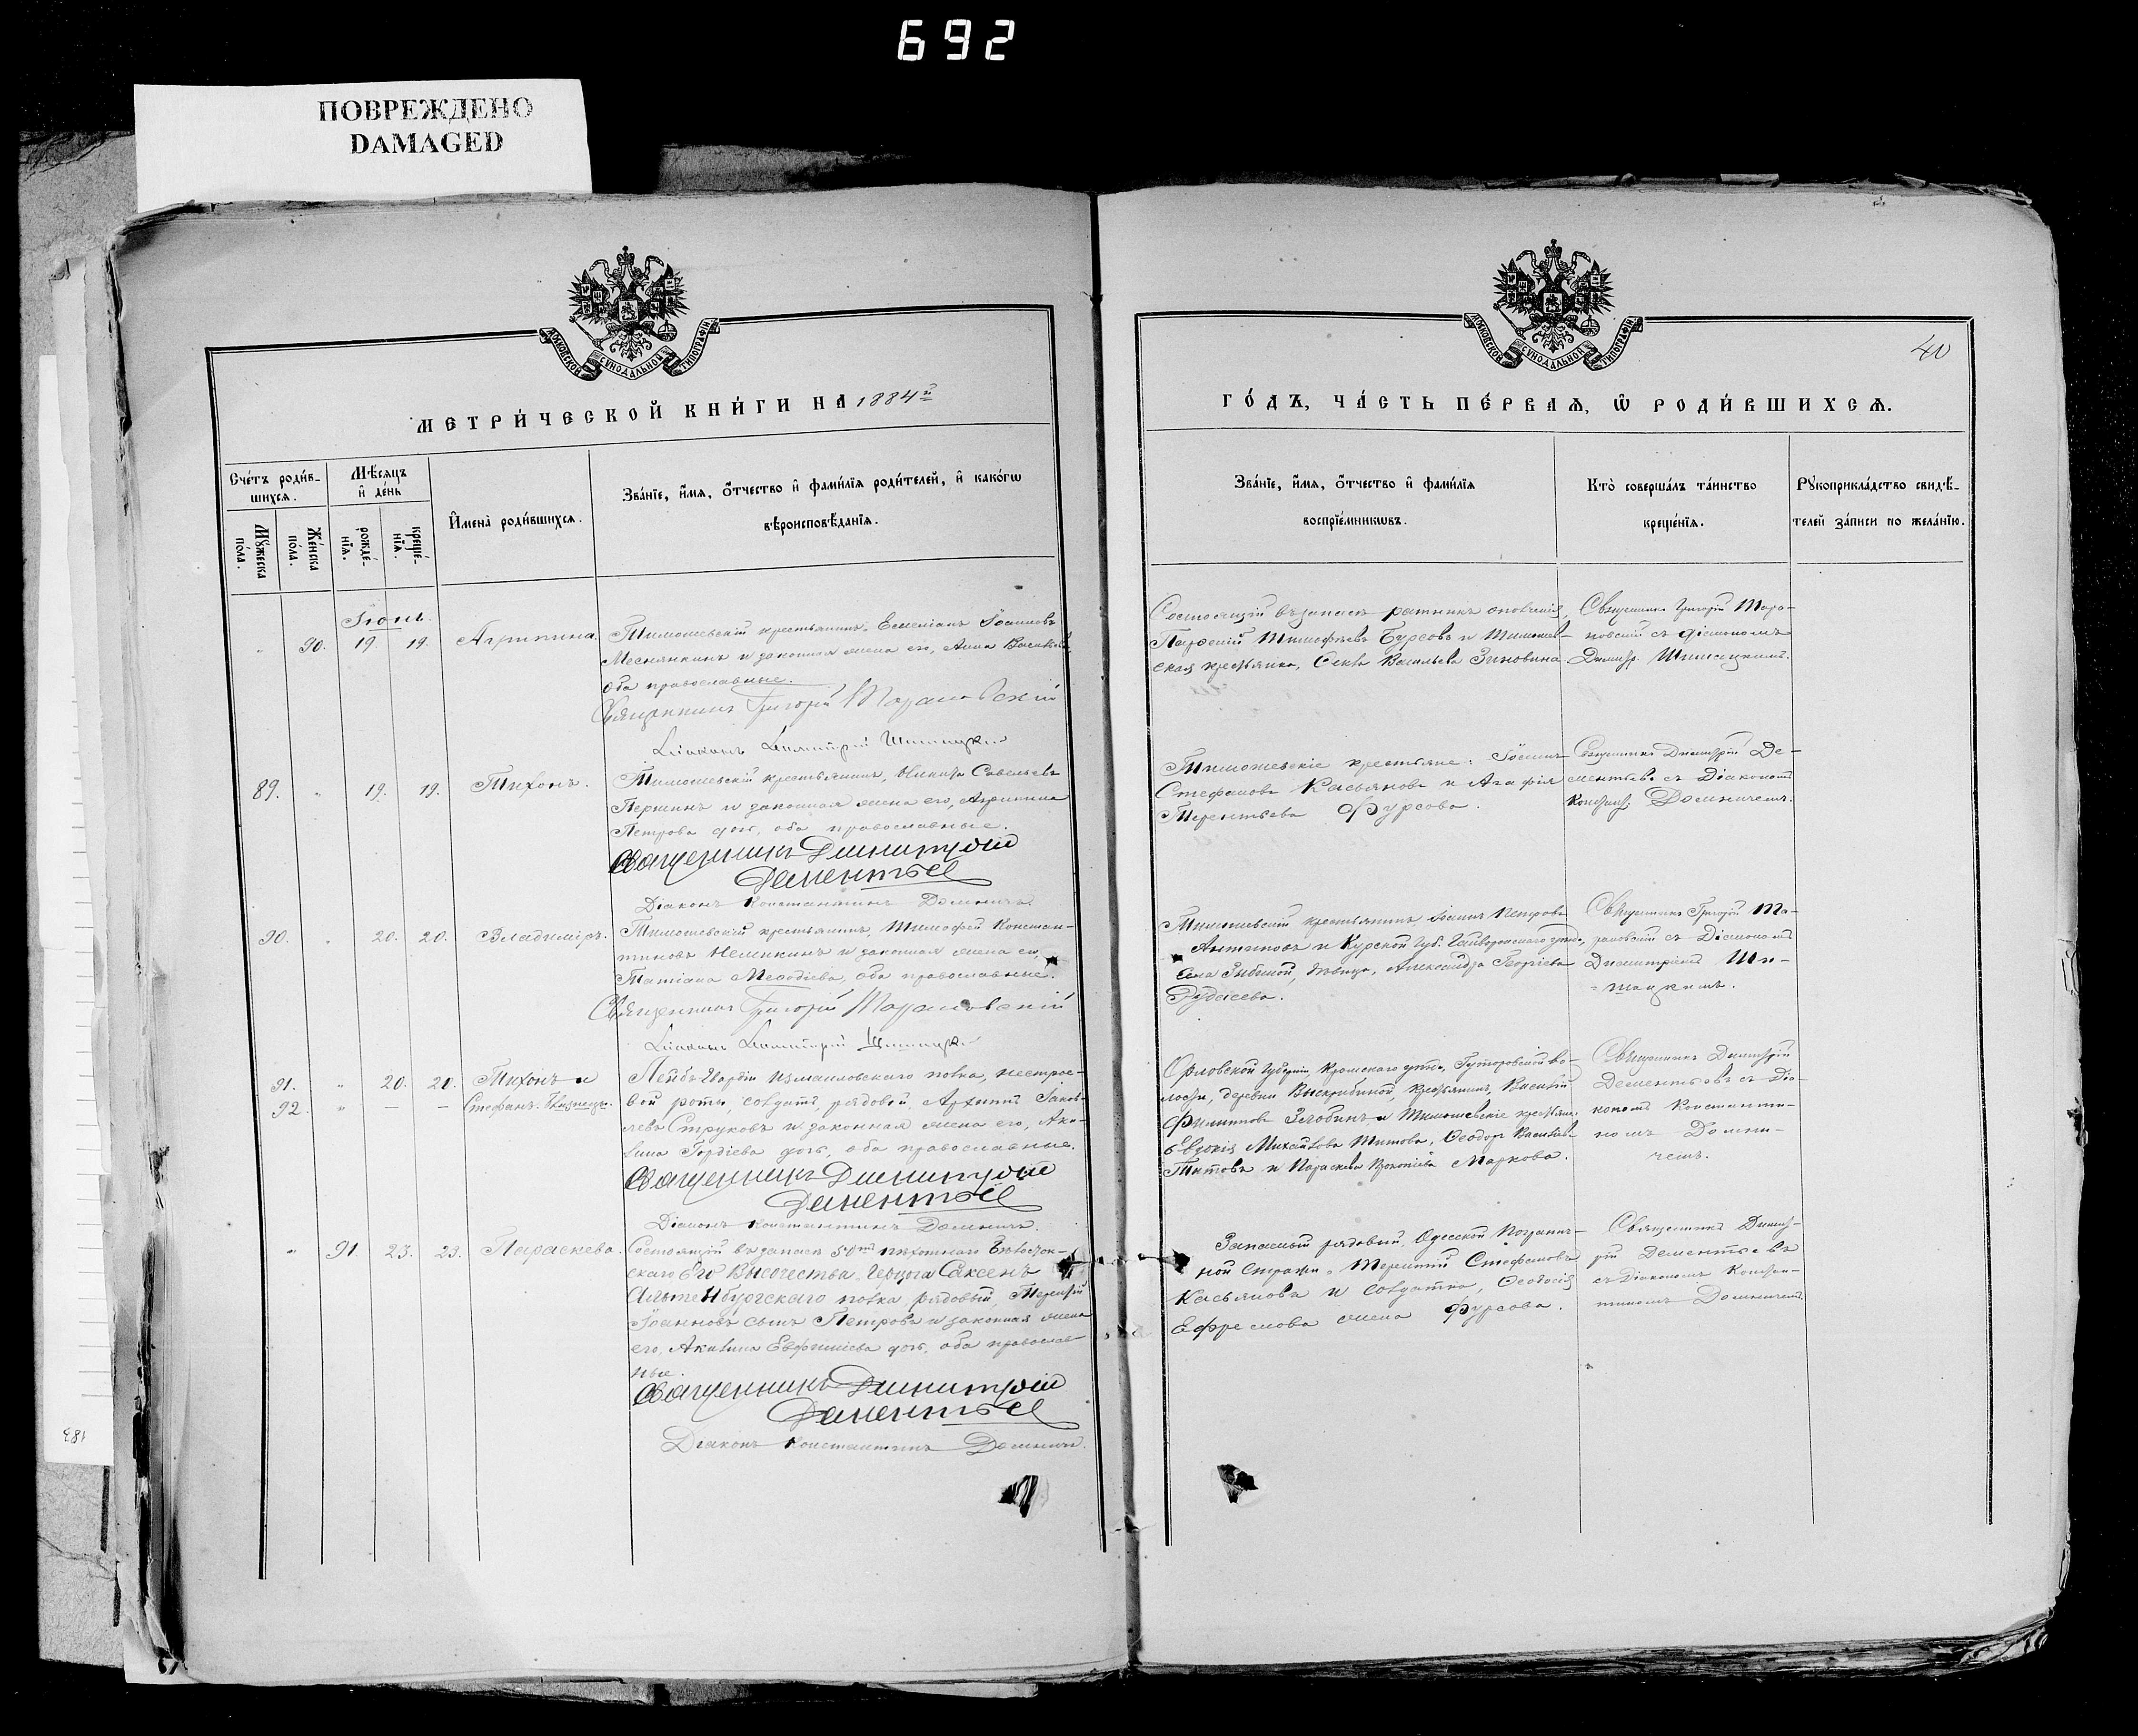 692
ПОВРЕЖДЕНО
DAMAGED
МОСКОВСКОЙ СѴНОДАЛЬНОЙ ТИПОГРАФІИ
МЕТРИ́ЧЕСКОЙ КНИ́ГИ НА 1884й
Сче́тъ роди́в-
шихся.
Мѣ́сяцъ
и҆ де́нь
И҆мена̀ роди́вшихся.
Зва́нїе, и҆́мя, ѻ҆́тчество и҆ фами́лїя роди́телей, и҆ како́гѡ
вѣроисповѣ́данїя.
Мꙋ́жеска по́ла.
Же́нска по́ла.
рожде́-
нїя.
креще́-
нїя.
Іюнь.
" 90. 19. 19. Агриппина
Тимошевскій крестьянинъ Емеліанъ Іоанновъ
и законная жена его, Анна Васильева
оба православные.
Священникъ Григорій
Діаконъ Димитрій
89. " 19. 19. Тихонъ.
Тимошевскій крестьянинъ, Никита Савельевъ
Першинъ и законная жена его, Агриппина
Петрова дочь, оба православные.
Священникъ Димитрій
Дементьев
Діаконъ Константинъ Доминичъ.
90. " 20. 20. Владиміръ.
Тимошевскій крестьянинъ, Тимофей Констан-
тиновъ и законная жена его,
Татіана Меѳодіева, оба православные.
Священникъ Григорій
Діаконъ Димитрій
91. " 20. 20. Тихонъ и
92. " — — Стефанъ. близнецы.
Лейбъ Гвардіи Измаиловскаго полка, нестрое-
вой роты, солдатъ, рядовой Архипъ Іаков-
левъ Струковъ и законная жена его, Аки-
лина Гордіева дочь, оба православные.
Священникъ Димитрій
Дементьев
Діаконъ Константинъ Доминичъ.
" 91 23. 23. Параскева.
Состоящій въ запасѣ 50го пѣхотнаго Бѣлосток-
скаго Его Высочества Герцога Саксенъ
Альтенбургскаго полка рядовый, Терентій
Іоанновъ сынъ Петровъ и законная жена
его, Акилина Евфиміева дочь, оба православ-
ные.
Священникъ Димитрій
Дементьев
Діаконъ Константинъ Доминичъ.
183
МОСКОВСКОЙ СѴНОДАЛЬНОЙ ТИПОГРАФІИ
40
ГО́ДЪ, ЧА́СТЬ ПЕ́РВАЯ, Ѡ҆ РОДИ́ВШИХСЯ.
Зва́нїе, и҆́мя, ѻ҆́тчество и҆ фами́лїя
воспрїе́мникѡвъ.
Кто̀ соверша́лъ та́инство
креще́нїя.
Рꙋкоприкла́дство свидѣ́-
телей за́писи по жела́нїю.
Состоящій въ запасѣ ратникъ ополченія,
Тимофѣевъ Бурсовъ и Тимошев-
ская крестьянка, Ѳекла Васильева Зиновина
Священникъ Григорій
съ діакономъ
Димитр.
Тимошевскіе крестьяне: Іоаннъ
Стефановъ Касьяновъ и Агафія
Терентьева Фурсова.
Священникъ Димитрій Де-
ментьевъ съ Діакономъ
Констант. Доминичемъ.
Тимошевскій крестьянинъ Іоаннъ Петровъ
Антоновъ и Курской губ. уѣзда,
села дѣвица, Александра Георгіева
Священникъ Григорій
съ Діакономъ
Димитріемъ Ши-
Орловской губерніи, Кромскаго уѣзда, во-
лости, деревни крестьянинъ, Василій
Филипповъ Злобинъ и Тимошевскіе крестьяне
Евдокія Михайлова Титова, Ѳеодоръ Васильевъ
Титовъ и Параскева Прокопіева Маркова.
Священникъ Димитрій
Дементьевъ съ Діа-
кономъ Константи-
номъ Домини-
чемъ.
Запасный рядовый, Одесской Погранич-
ной стражи Терентій Стефановъ
Касьяновъ и солдатка, Ѳеодосія
Ефремова жена Фурсова.
Священникъ Димит-
рій Дементьевъ
съ Діакономъ Констан-
тиномъ Доминичемъ.